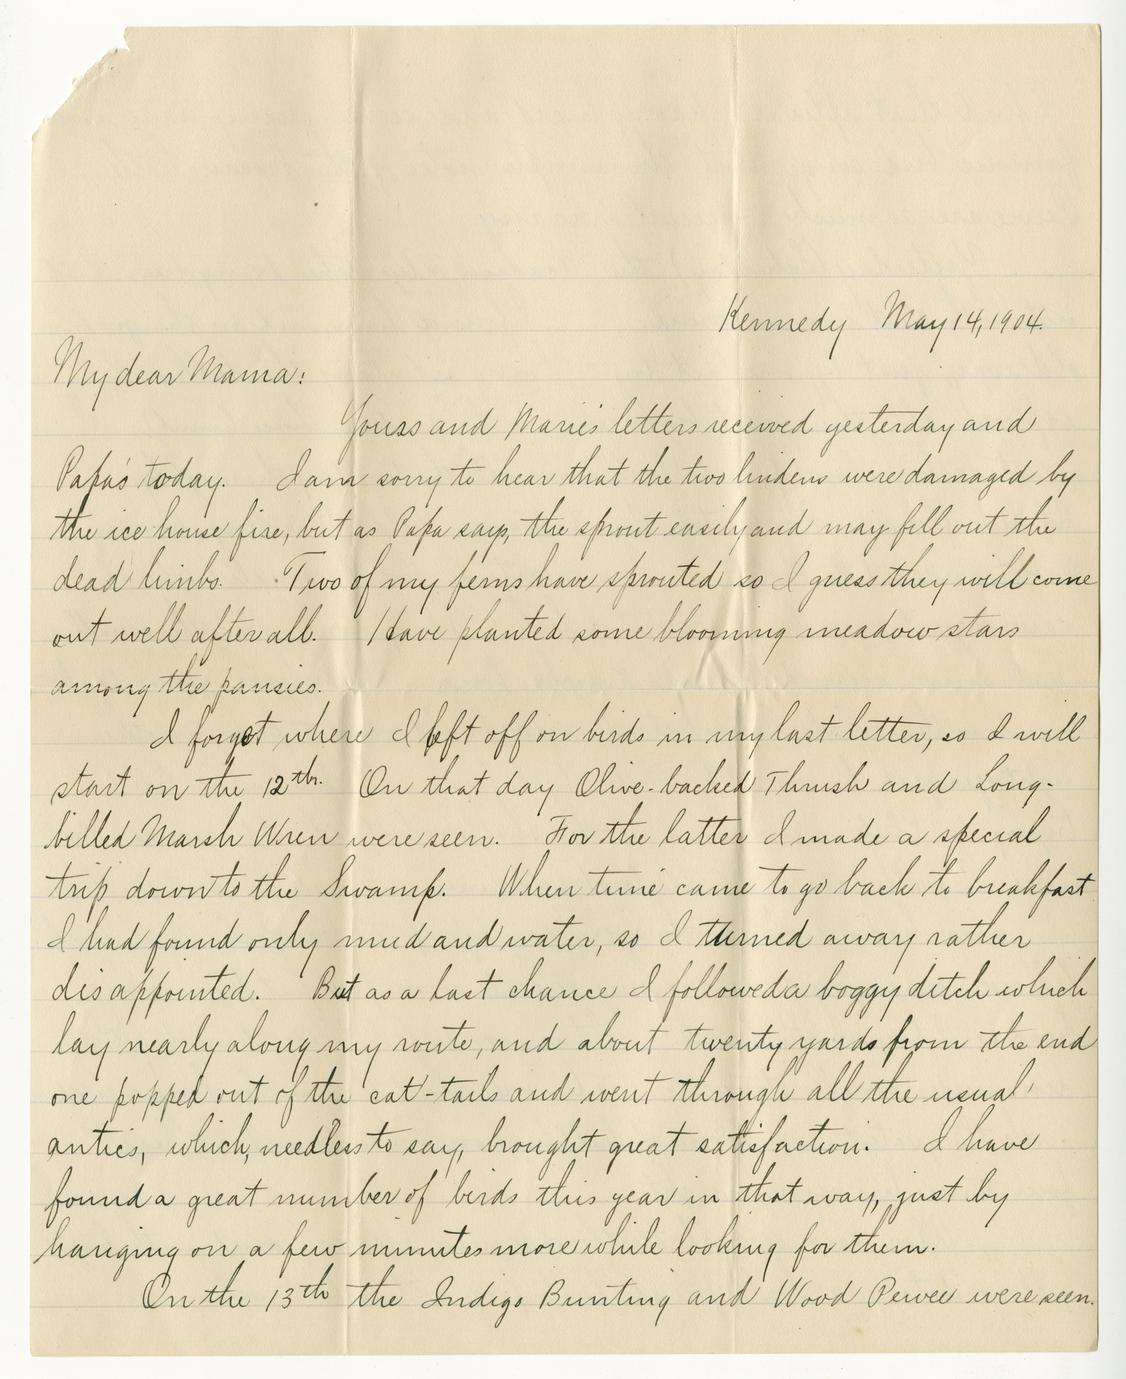 Kennedy May 14, 1904.
My dear Mama:
Yours and Marie's letters received yesterday and
Papa's today. I am sorry to hear that the two lindens were damaged by
the ice house fire, but as Papa says, the sprout easily and may fill out the
dead limbs. Two of my ferns have sprouted so I guess they will come
out well after all. Have planted some blooming meadow stars
among the pansies.
I forget where I left off on birds in my last letter, so I will
start on the 12th. On that day Olive-backed Thrush and Long-
billed Marsh Wren were seen. For the latter I made a special
trip down to the Swamp. When time came to go back to breakfast
I had found only mud and water, so I turned away rather
disappointed. But as a last chance I followed a boggy ditch which
lay nearly along my route, and about twenty yards from the end
one popped out of the cat-tails and went through all the usual
antics, which, needless to say, brought great satisfaction. I have
found a great number of birds this year in that way, just by
hanging on a few minutes more while looking for them.
On the 13th the Indigo Bunting and Wood Pewee were seen.